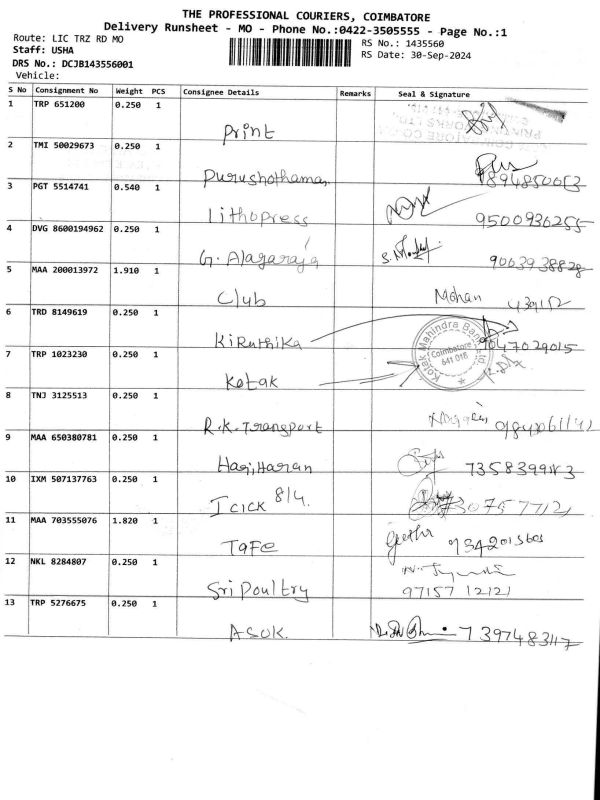 THE PROFESSIONAL COURIERS, COIMBATORE
Delivery Runsheet - MO - Phone No.:0422-3505555 - Page No.:1
Route: LIC TRZ RD MO
RS No.: 1435560
Staff: USHA
RS Date: 30-Sep-2024
DRS No.: DCJB143556001
Vehicle:
S No Consignment No Weight PCS Consignee Details Remarks Seal & Signature
1 TRP 651200 0.250 1
Print
2 TMI 50029673 0.250 1
Purushothaman
3 PGT 5514741 0.540 1
Lithopress 9500936255
4 DVG 8600194962 0.250 1
G. Alagaraja 9063938828
5 MAA 200013972 1.910 1
Club Mohan 439152
6 TRD 8149619 0.250 1
Kiruthika 9047029015
Kotak Mahindra Bank Ltd. Coimbatore 641 018
7 TRP 1023230 0.250 1
Kotak
8 TNJ 3125513 0.250 1
R.K. Transport
9 MAA 650380781 0.250 1
Hariharan
10 IXM 507137763 0.250 1
Icick 8/4.
11 MAA 703555076 1.820 1
Tafe Geetha
12 NKL 8284807 0.250 1
Sri Poultry 97157 12121
13 TRP 5276675 0.250 1
Asok. 7397483117